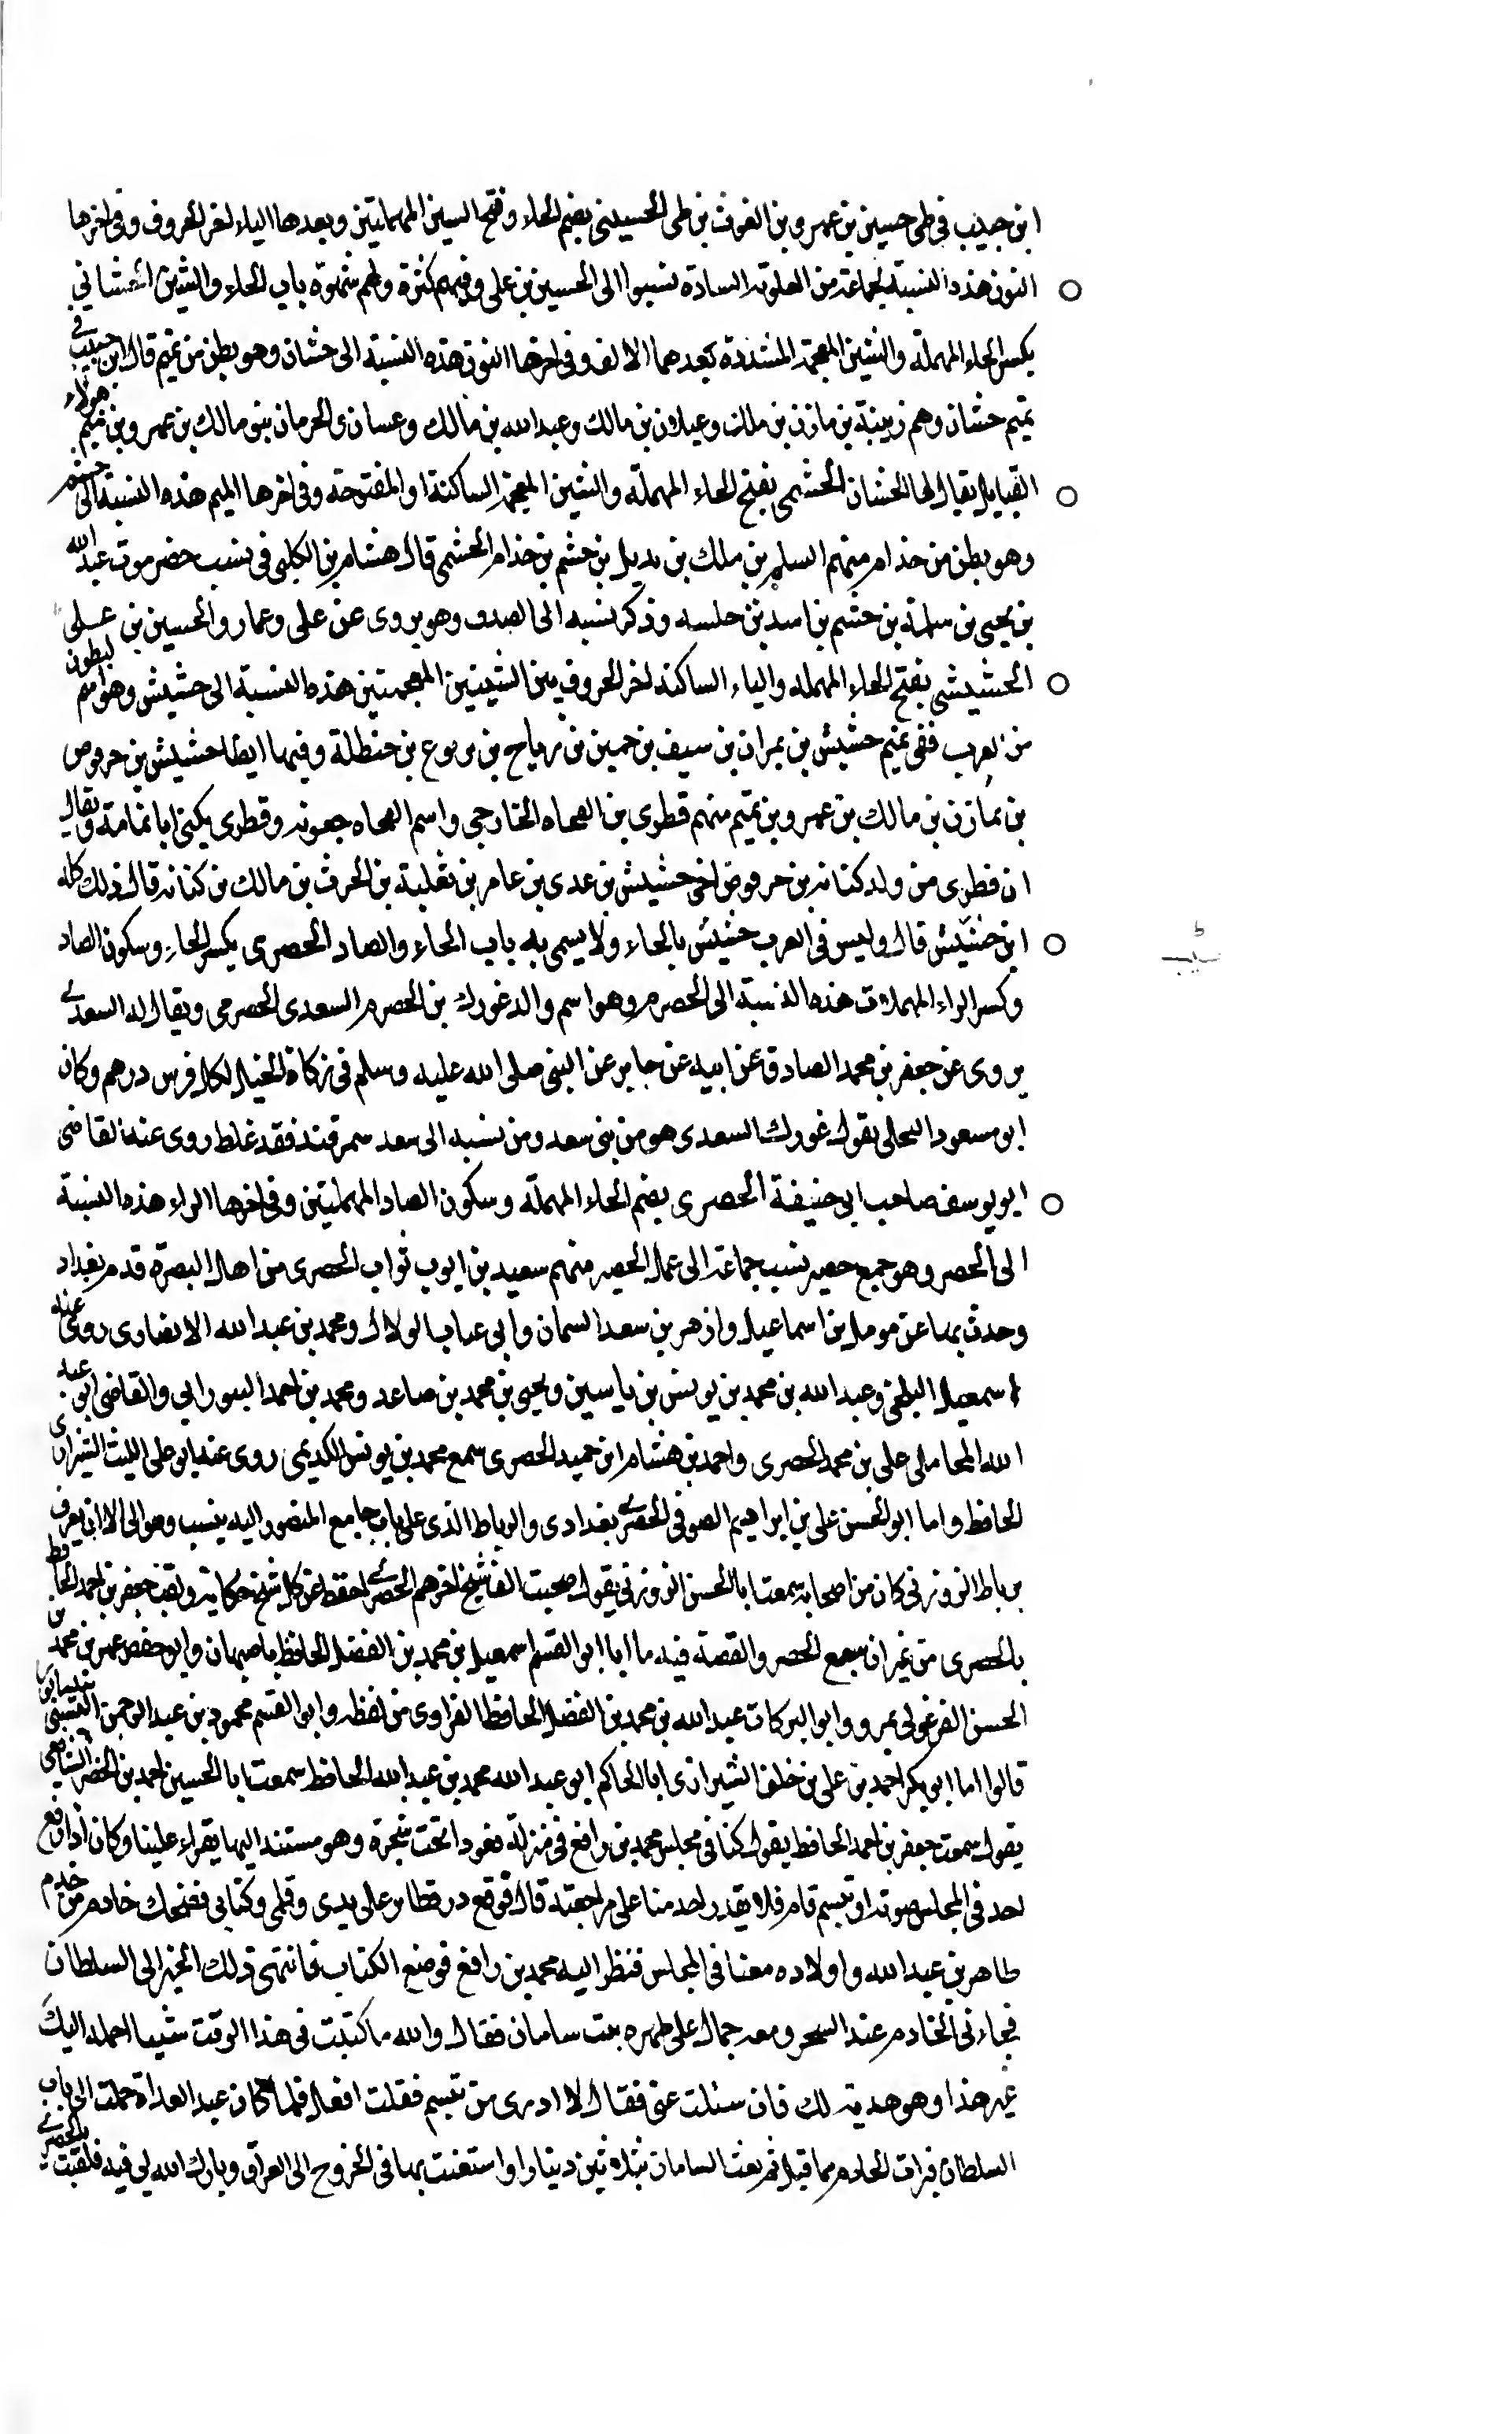 ابن حبيب في طى حسين بن عمرو بن الغوث بن طى الحسيني بضم الحاء وفتح السين المهملتين وبعدها الياء اخر الحروف وفى اخرها
النون هذه النسبة لجماعة من العلوية السادة نسبوا الى الحسين بن على وفيهم كثرة ولهم شهرة باب الحاء والشين الحشاني
بكسر الحاء المهملة والشين المعجمة المشددة بعدهما الالف وفى اخرها النون هذه النسبة الى حشان وهو بطن من تميم قال ابن حبيب في
تميم حشان وهم زبينة بن مازن بن ملك وعيلان بن مالك وعبد الله بن مالك وغسان والحرمان بنو مالك بن عمرو بن تميم هولاء
القبايل يقال لها الحشان الحشمي بفتح الحاء المهملة والشين المعجمة الساكنة او المفتوحة وفى اخرها الميم هذه النسبة الى حشم
وهو بطن من جذام منهم السلم بن ملك بن بديل بن حشم بن جذام الحشمي قال هشام بن الكلبي في نسب حضرموت عبد الله
بن يحيى بن سلمة بن حشم بن اسد بن حلسه وذكر نسبه الى الصدف وهو يروى عن على وعمار والحسين بن على
الحشيشي بفتح الحاء المهملة والياء الساكنة اخر الحروف بين الشينين المعجمتين هذه النسبة الى حشيش وهو اسم لبطون
من العرب ففى تميم حشيش بن نمران بن سيف بن حمين بن رياح بن يربوع بن حنظلة وفيها ايضا حشيش بن حرقوص
بن مازن بن مالك بن عمرو بن تميم منهم قطرى بن الفجاه الخارجي واسم الفجاه جعونه وقطرى يكنى ابا نعامة ويقال
ان قطرى من ولد كنانه بن حرقوص اخى حشيش بن عدى بن عامر بن ثعلبة بن الحرث بن مالك بن كنانه قال ذلك كله
ابن حبيب قال وليس في العرب حشيش بالحاء ولا يسمى به باب الحاء والصاد الحصرمي بكسر الحاء وسكون الصاد
وكسر الراء المهملات هذه النسبة الى الحصرم وهو اسم والد غورك بن الحصرم السعدى الحصرمى ويقال له السعدى
يروى عن جعفر بن محمد الصادق عن ابيه عن جابر عن النبي صلى الله عليه وسلم في زكاة الخيل لكل فرس درهم وكان
ابو مسعود البجلي يقول غورك السعدى هو من بنى سعد ومن نسبه الى سعد سمرقند فقد غلط روى عنه القاضى
ابو يوسف صاحب ابى حنيفة الحصرى بضم الحاء المهملة وسكون الصاد المهملتين وفى اخرها الراء هذه النسبة
الى الحصر وهو جمع حصير نسب جماعة الى عمل الحصير منهم سعيد بن ايوب ثواب الحصرى من اهل البصرة قدم بغداد
وحدث بها عن مومل بن اسماعيل وازهر بن سعد السمان وابي عتاب الدلال ومحمد بن عبد الله الانصارى روى عنه
اسمعيل البلخي وعبد الله بن محمد بن يونس بن ياسين ويحيى بن محمد بن صاعد ومحمد بن احمد البوراني والقاضى ابو عبد
الله المحاملي على بن محمد الحصرى واحمد بن هشام ابن حميد الحصرى سمع محمد بن يونس الكديمى روى عنه ابو على الليث الشيرازى
الحافظ واما ابو الحسن على بن ابراهيم الصوفى الحصرى بغدادى والرباط الذى على باب جامع المنصور اليه ينسب وهو الى الان يعرف
برباط الزوزنى كان من اصحابه سمعت ابا الحسن الزوزنى يقول صحبت الف شيخ اخرهم الحصرى احفظ عن كل شيخ حكاية ولقب جعفر بن احمد الحافظ
بالحصرى من غير ان يبيع الحصر والقصة فيه ما ابا ابو القسم اسمعيل بن محمد بن الفضل الحافظ باصبهان وابو حفص عمر بن محمد بن
الحسن الفرغولى بمرو وابو البركات عبد الله بن محمد بن الفضل الحافظ الفراوى من لفظه وابو القسم محمود بن عبد الرحمن البستى بنيسابور
قالوا اما ابو بكر احمد بن على بن خلف الشيرازى ابا الحاكم ابو عبد الله محمد بن عبد الله الحافظ سمعت ابا الحسين احمد بن الخضر الشافعى
يقول سمعت جعفر بن احمد الحافظ يقول كنا في مجلس محمد بن رافع في منزله قعودا تحت شجرة وهو مستند اليها يقراء علينا وكان اذا رفع
احد في المجلس صوته او تبسم قام فلا يقدر احد منا على مراجعته قال فوقع ذرق طاير على يدى وقلمى وكتابى فضحك خادم من خدم
طاهر بن عبد الله واولاده معنا في المجلس فنظر اليه محمد بن رافع فوضع الكتاب فانتهى ذلك الخبر الى السلطان
فجاءنى الخادم عند السحر ومعه حمال على ظهره بيت سامان فقال والله ما كتبت في هذا الوقت شيا احمله اليك
غير هذا وهو هدية لك فان سئلت عنى فقال لا ادرى من تبسم فقلت افعل فلما كان عبد الغداة حملت الى باب
السلطان فبرات الخادم مما قيل ثم بعت السامان بثلاثين دينارا واستعنت بها في الخروج الى العراق وبارك الله لي فيه فلقبت بالحصرى